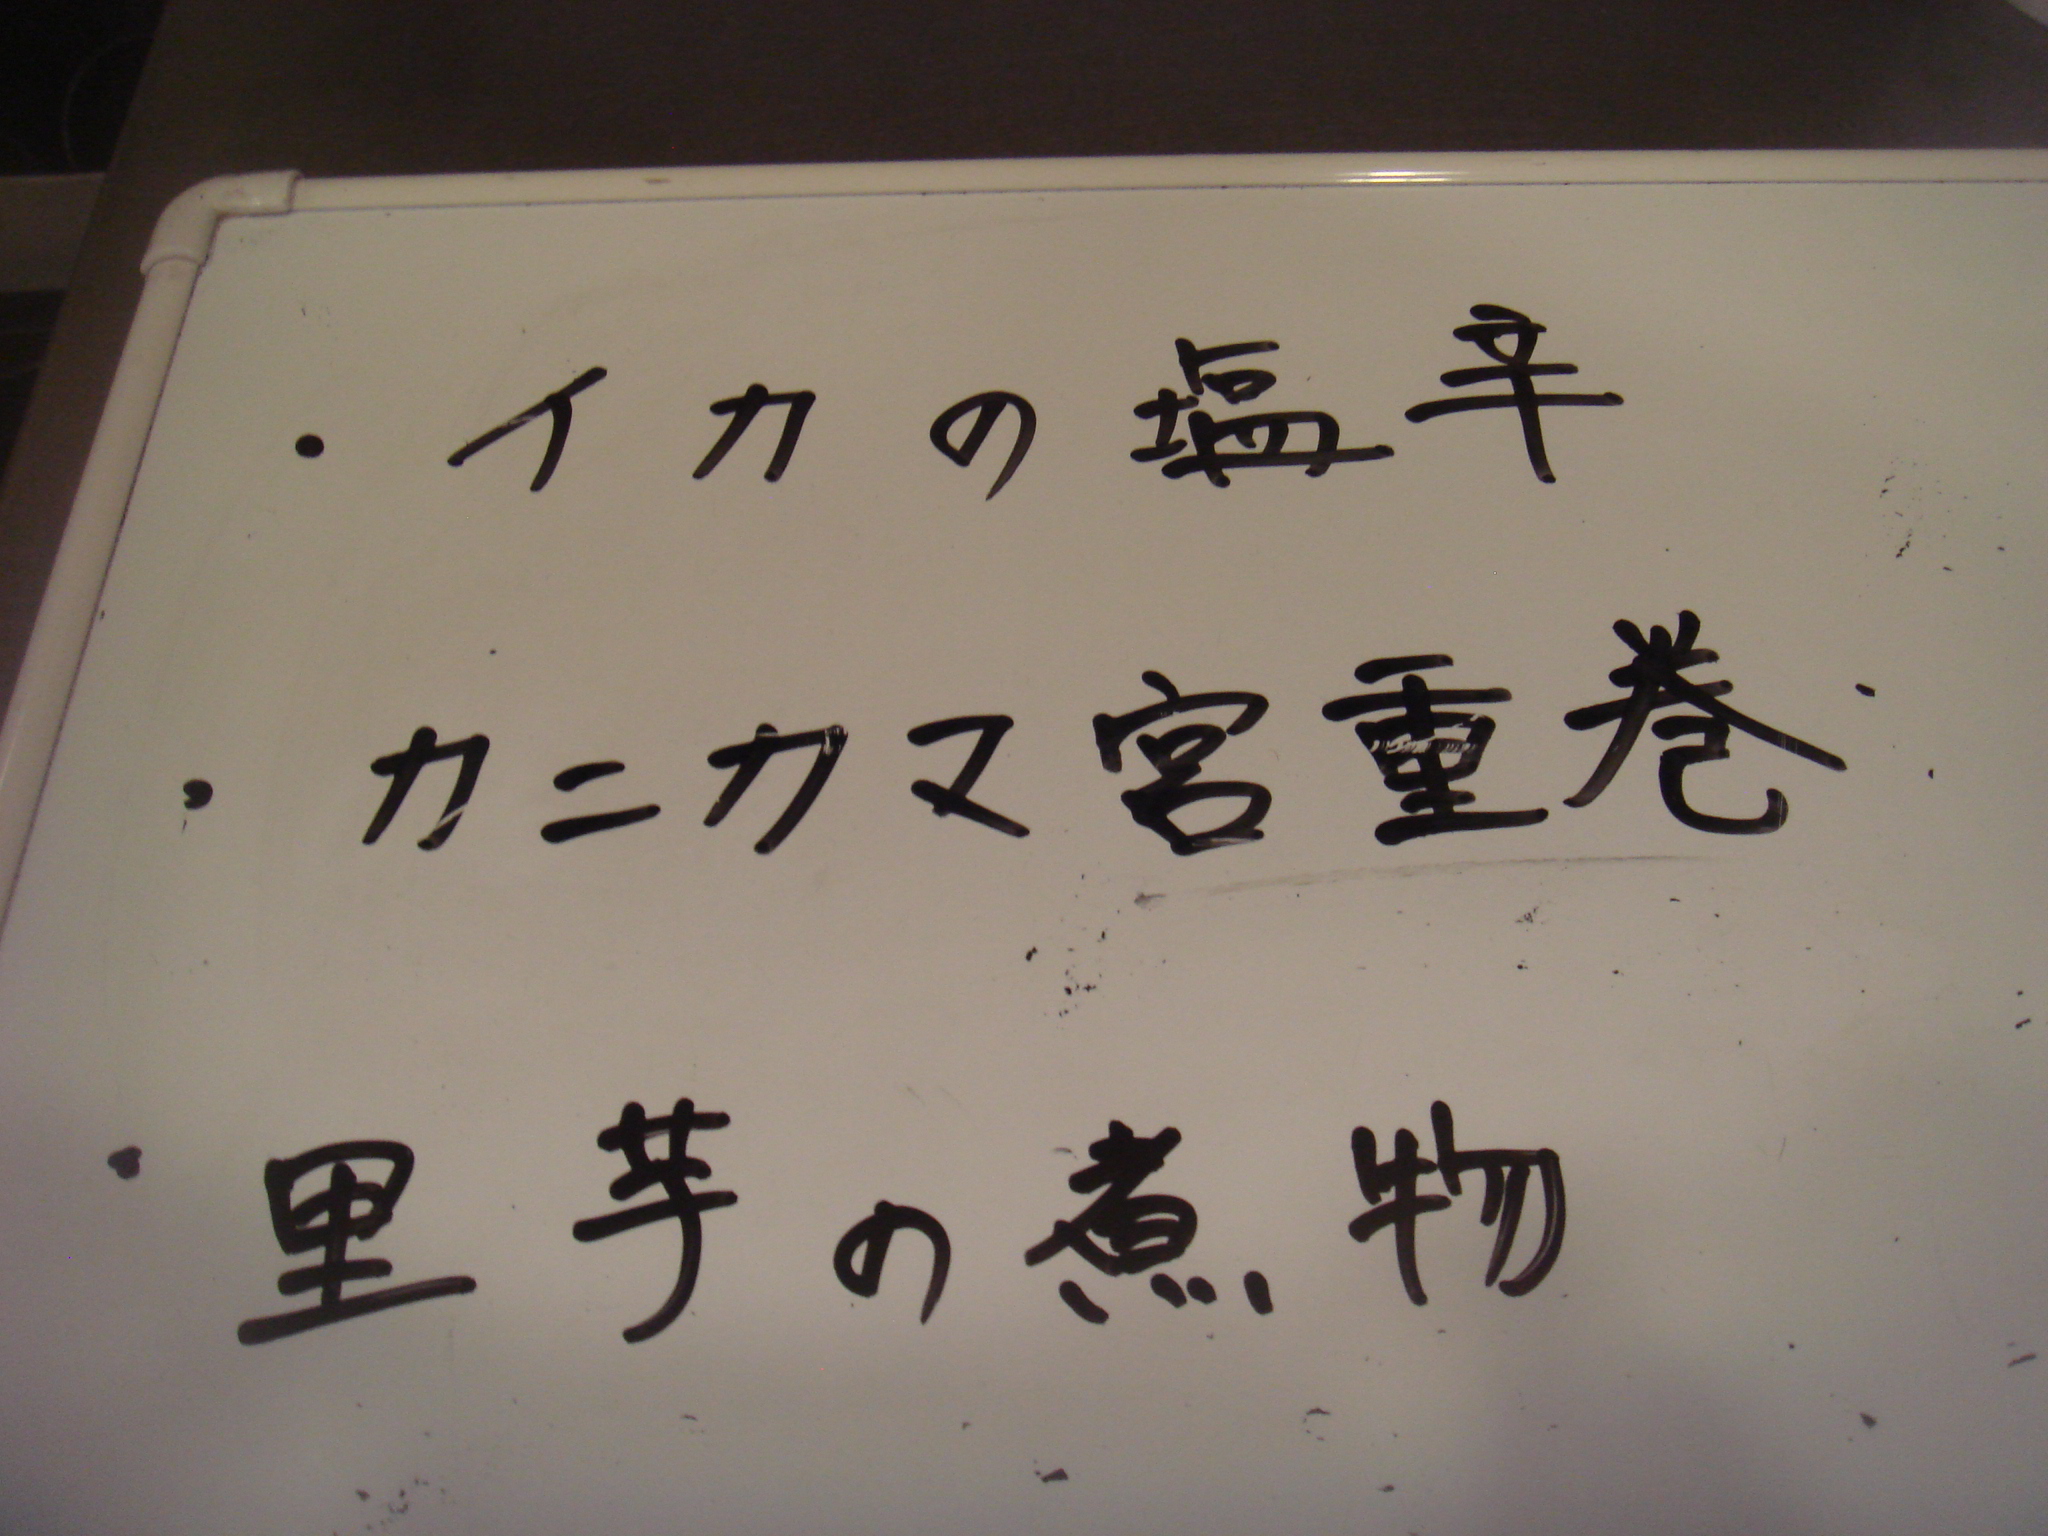 ・イカの塩辛
・カニカマ宮重巻
・里芋の煮物